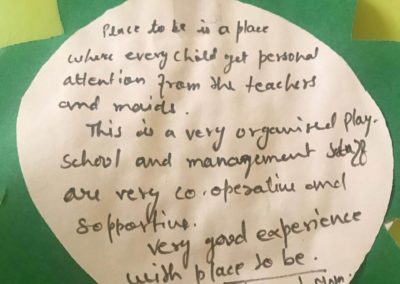 Place to be is a place
where every child get personal
attention from the teachers
and maids.
This is a very organised Play-
school and management staff
are very co-operative and
supportive.
Very good experience
with place to be.